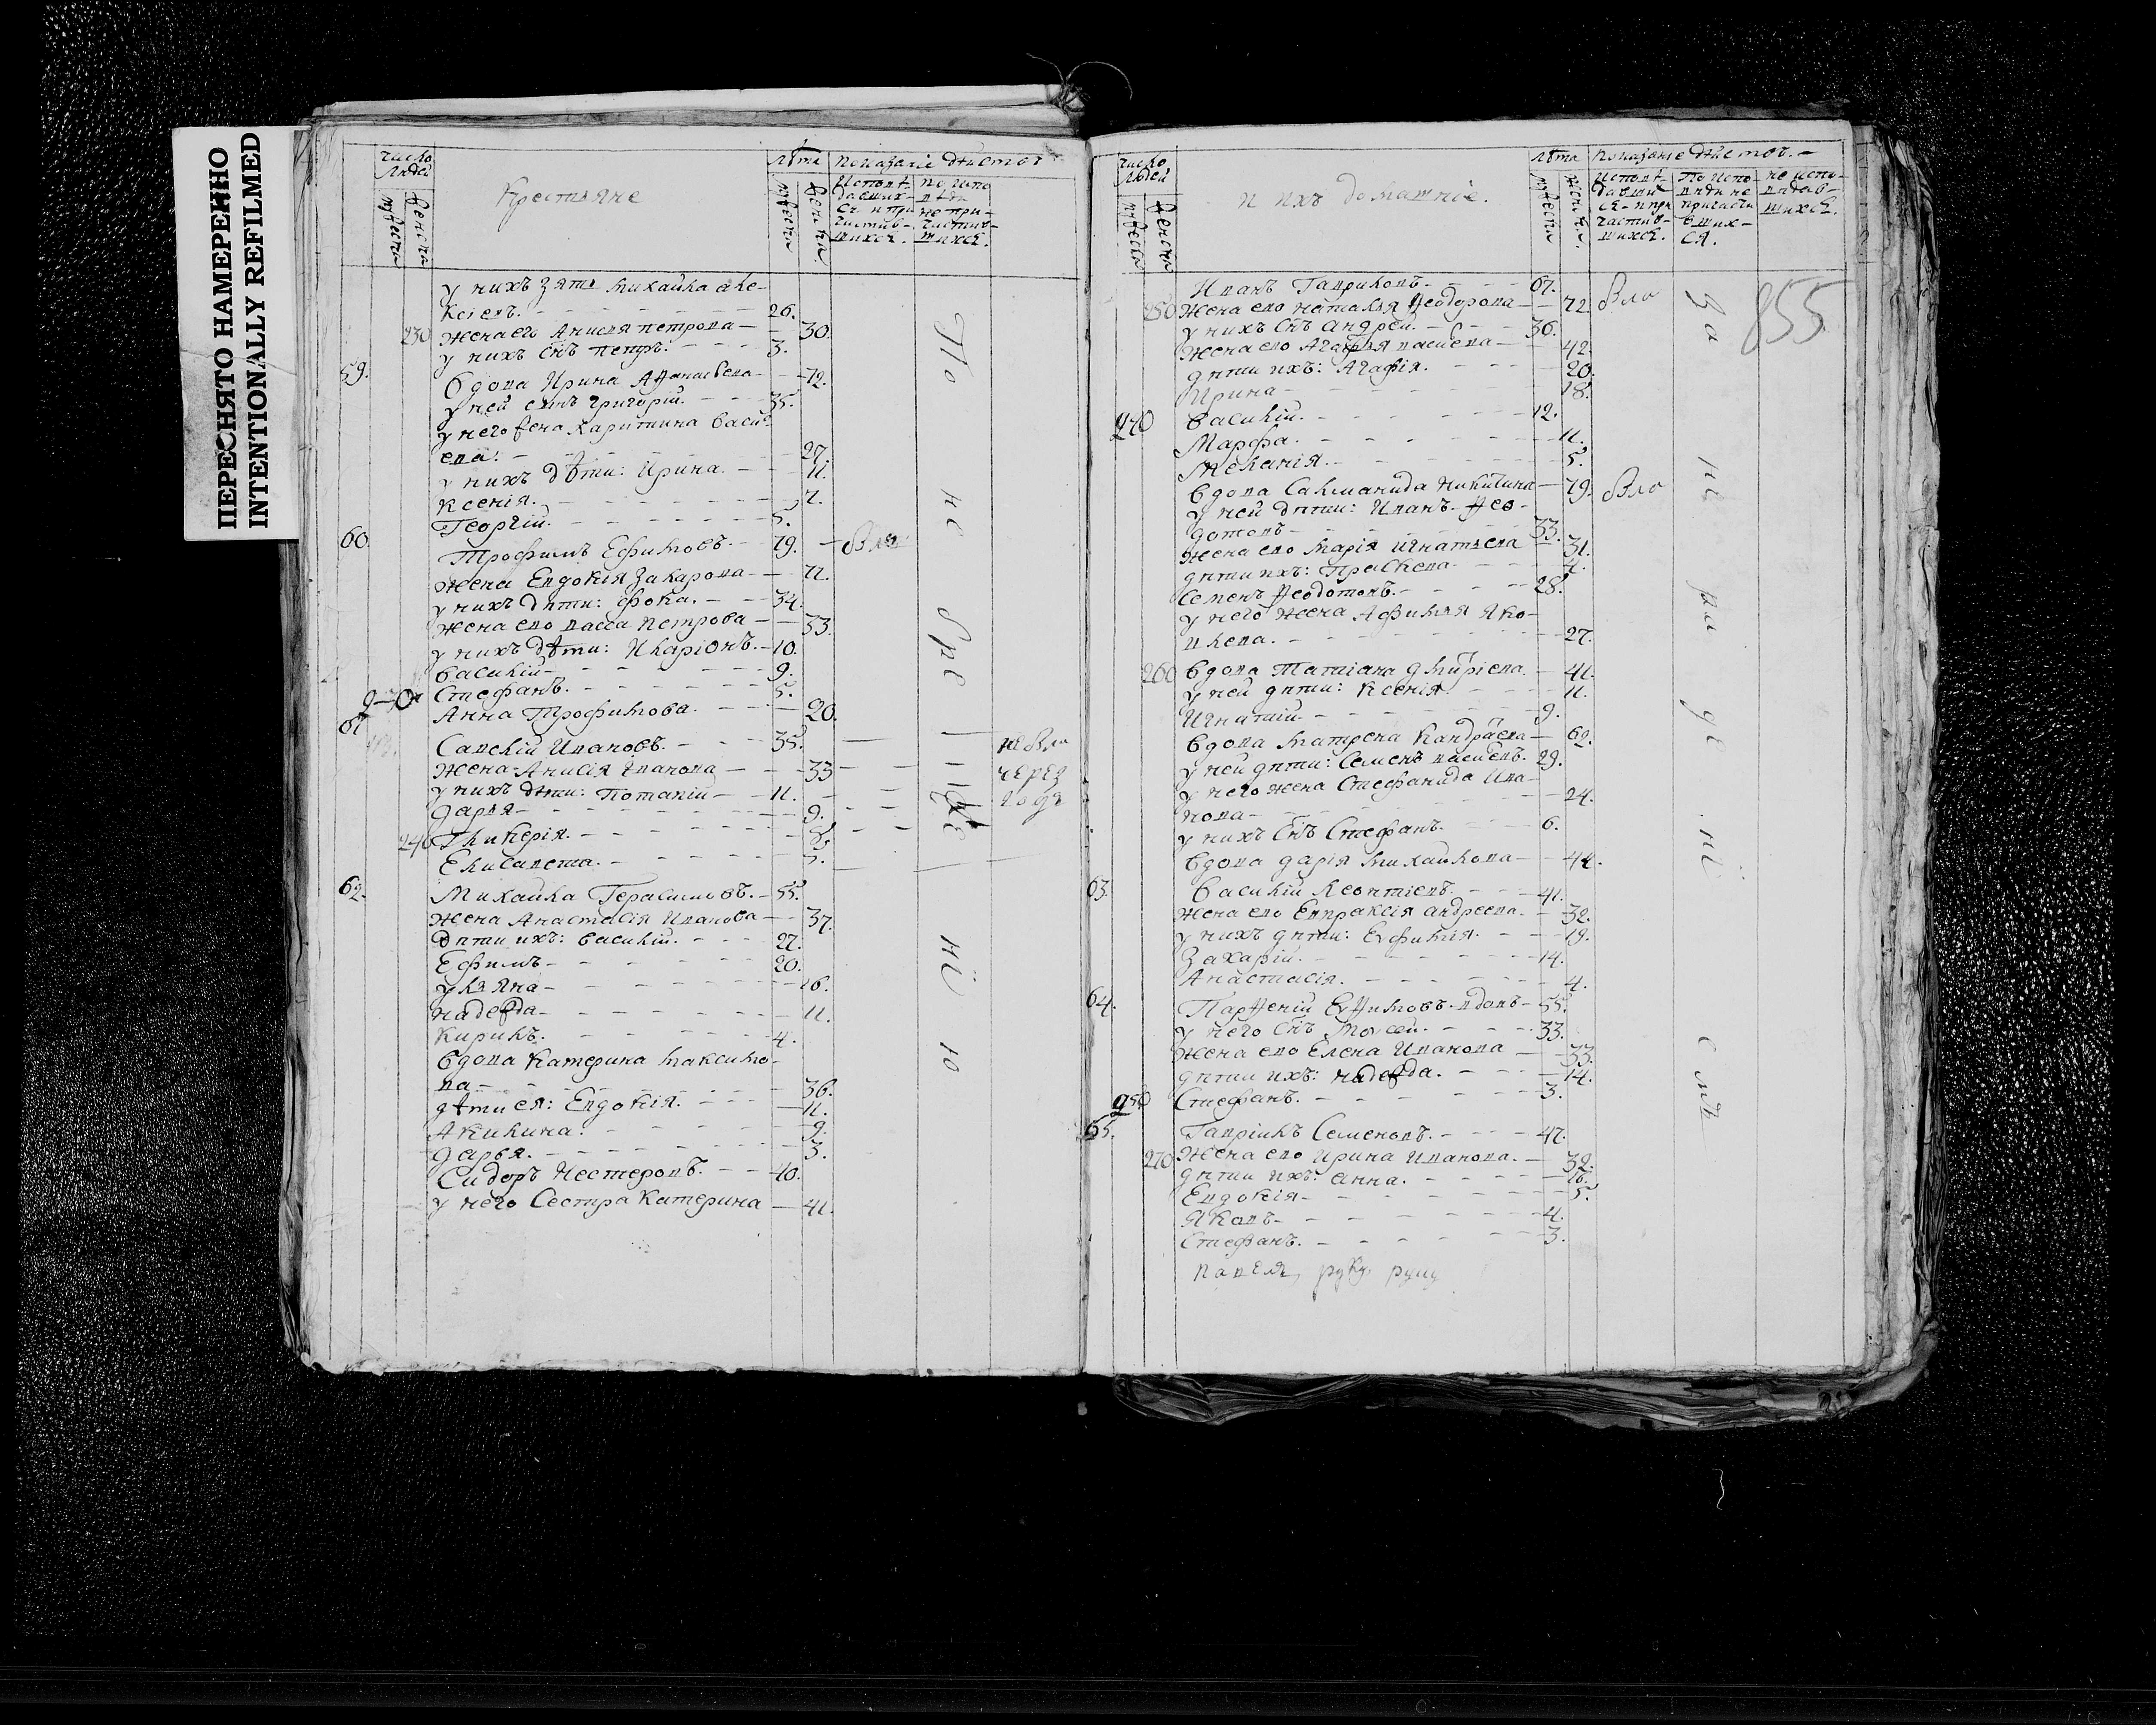 ПЕРЕСНЯТО НАМЕРЕННО
INTENTIONALLY REFILMED
число людей
мужеска
женска
Крестьяне
лѣта
мужеска
женска
показаніе дѣйствъ
у нихъ зять михайла але-
ксіевъ. 26.
230 жена его Анисія петрова 30.
у нихъ снъ петръ. 3.
59. вдова Ирина Аѳанасьева 72.
у ней сынъ григорій. 35.
у него жена харитина васи-
ева. 27.
у нихъ дѣти: Ирина. 11.
ксенія. 7.
Георгій. 5.
60. Трофимъ Ефимовъ. 79.
жена Евдокія Захарова
у нихъ дѣти: фока. 34.
жена ево васса петрова 33.
у нихъ дѣти: Иларіонъ. 10.
василій 9.
Стефанъ. 5.
Анна Трофимова. 20.
61. Савелій Ивановъ. 35.
жена Анисія Иванова 33
у нихъ дѣти: Потапій 11.
дарья 9.
240 Гликерія.
Елисавета.
62. Михайла Герасимовъ. 55.
жена Анастасія Иванова 37.
дѣти ихъ: василій. 27.
Ефимъ 20.
ульяна 16.
надежда 11.
Кирилъ. 4.
вдова Катерина максимо-
ва 36.
дѣти ея: Евдокія. 11.
Акилина. 9.
дарья. 3.
Сидоръ Нестеровъ. 40.
у него сестра Катерина 41.
не вла
через
годъ
По не бре же ні ю
число людей
мужеска
женска
и ихъ домашніе.
лѣта
мужеска
женска.
показаніе дѣйствъ.
исповѣ-
давши-
ся и при
частив-
шихся.
по испо-
вѣди не
причасти
вших-
ся.
не испо-
вѣдав-
шихся.
855
Иванъ Гавриловъ. 67.
250 жена ево наталья Ѳеодорова 72
у нихъ снъ андрей. 36.
жена ево Агафья васиева 42.
дѣти ихъ: Агафія. 20.
Ирина 18.
василій. 12.
Марфа. 11.
Меланія. 5.
вдова Саломанида никитина 79.
у ней дѣти: Иванъ Ѳео-
дотовъ 33.
жена ево марія игнатьева 31.
дѣти ихъ: Праскева.
Семенъ Ѳеодотовъ. 28.
у него жена Афимья Яко-
влева. 27.
260 вдова Татіана дмитріева 41.
у ней дѣти: Ксенія 11.
Игнатій 9.
вдова матрена Кандраева 62.
у ней дѣти: Семенъ васиевъ. 29.
у него жена Стефанида Ива-
нова 24.
у нихъ снъ Стефанъ. 6.
вдова дарія михайлова 44.
63. василій леонтіевъ. 41.
жена ево Евпраксія андреева. 32.
у нихъ дѣти: Евфимія. 19.
Захарій. 14.
Анастасія. 4.
64. Парѳеній Евѳимовъ вдовъ 55.
у него снъ моѵсей. 33.
жена ево Елена Иванова 33.
дѣти ихъ: надежда. 14.
Стефанъ. 3.
65. Гавріилъ Семеновъ. 47.
270 жена ево ирина Иванова. 32.
дѣти ихъ: анна. 16.
Евдокія 5.
Яковъ 4.
Стефанъ. 3.
За не ра де ні е мъ
павелъ руку